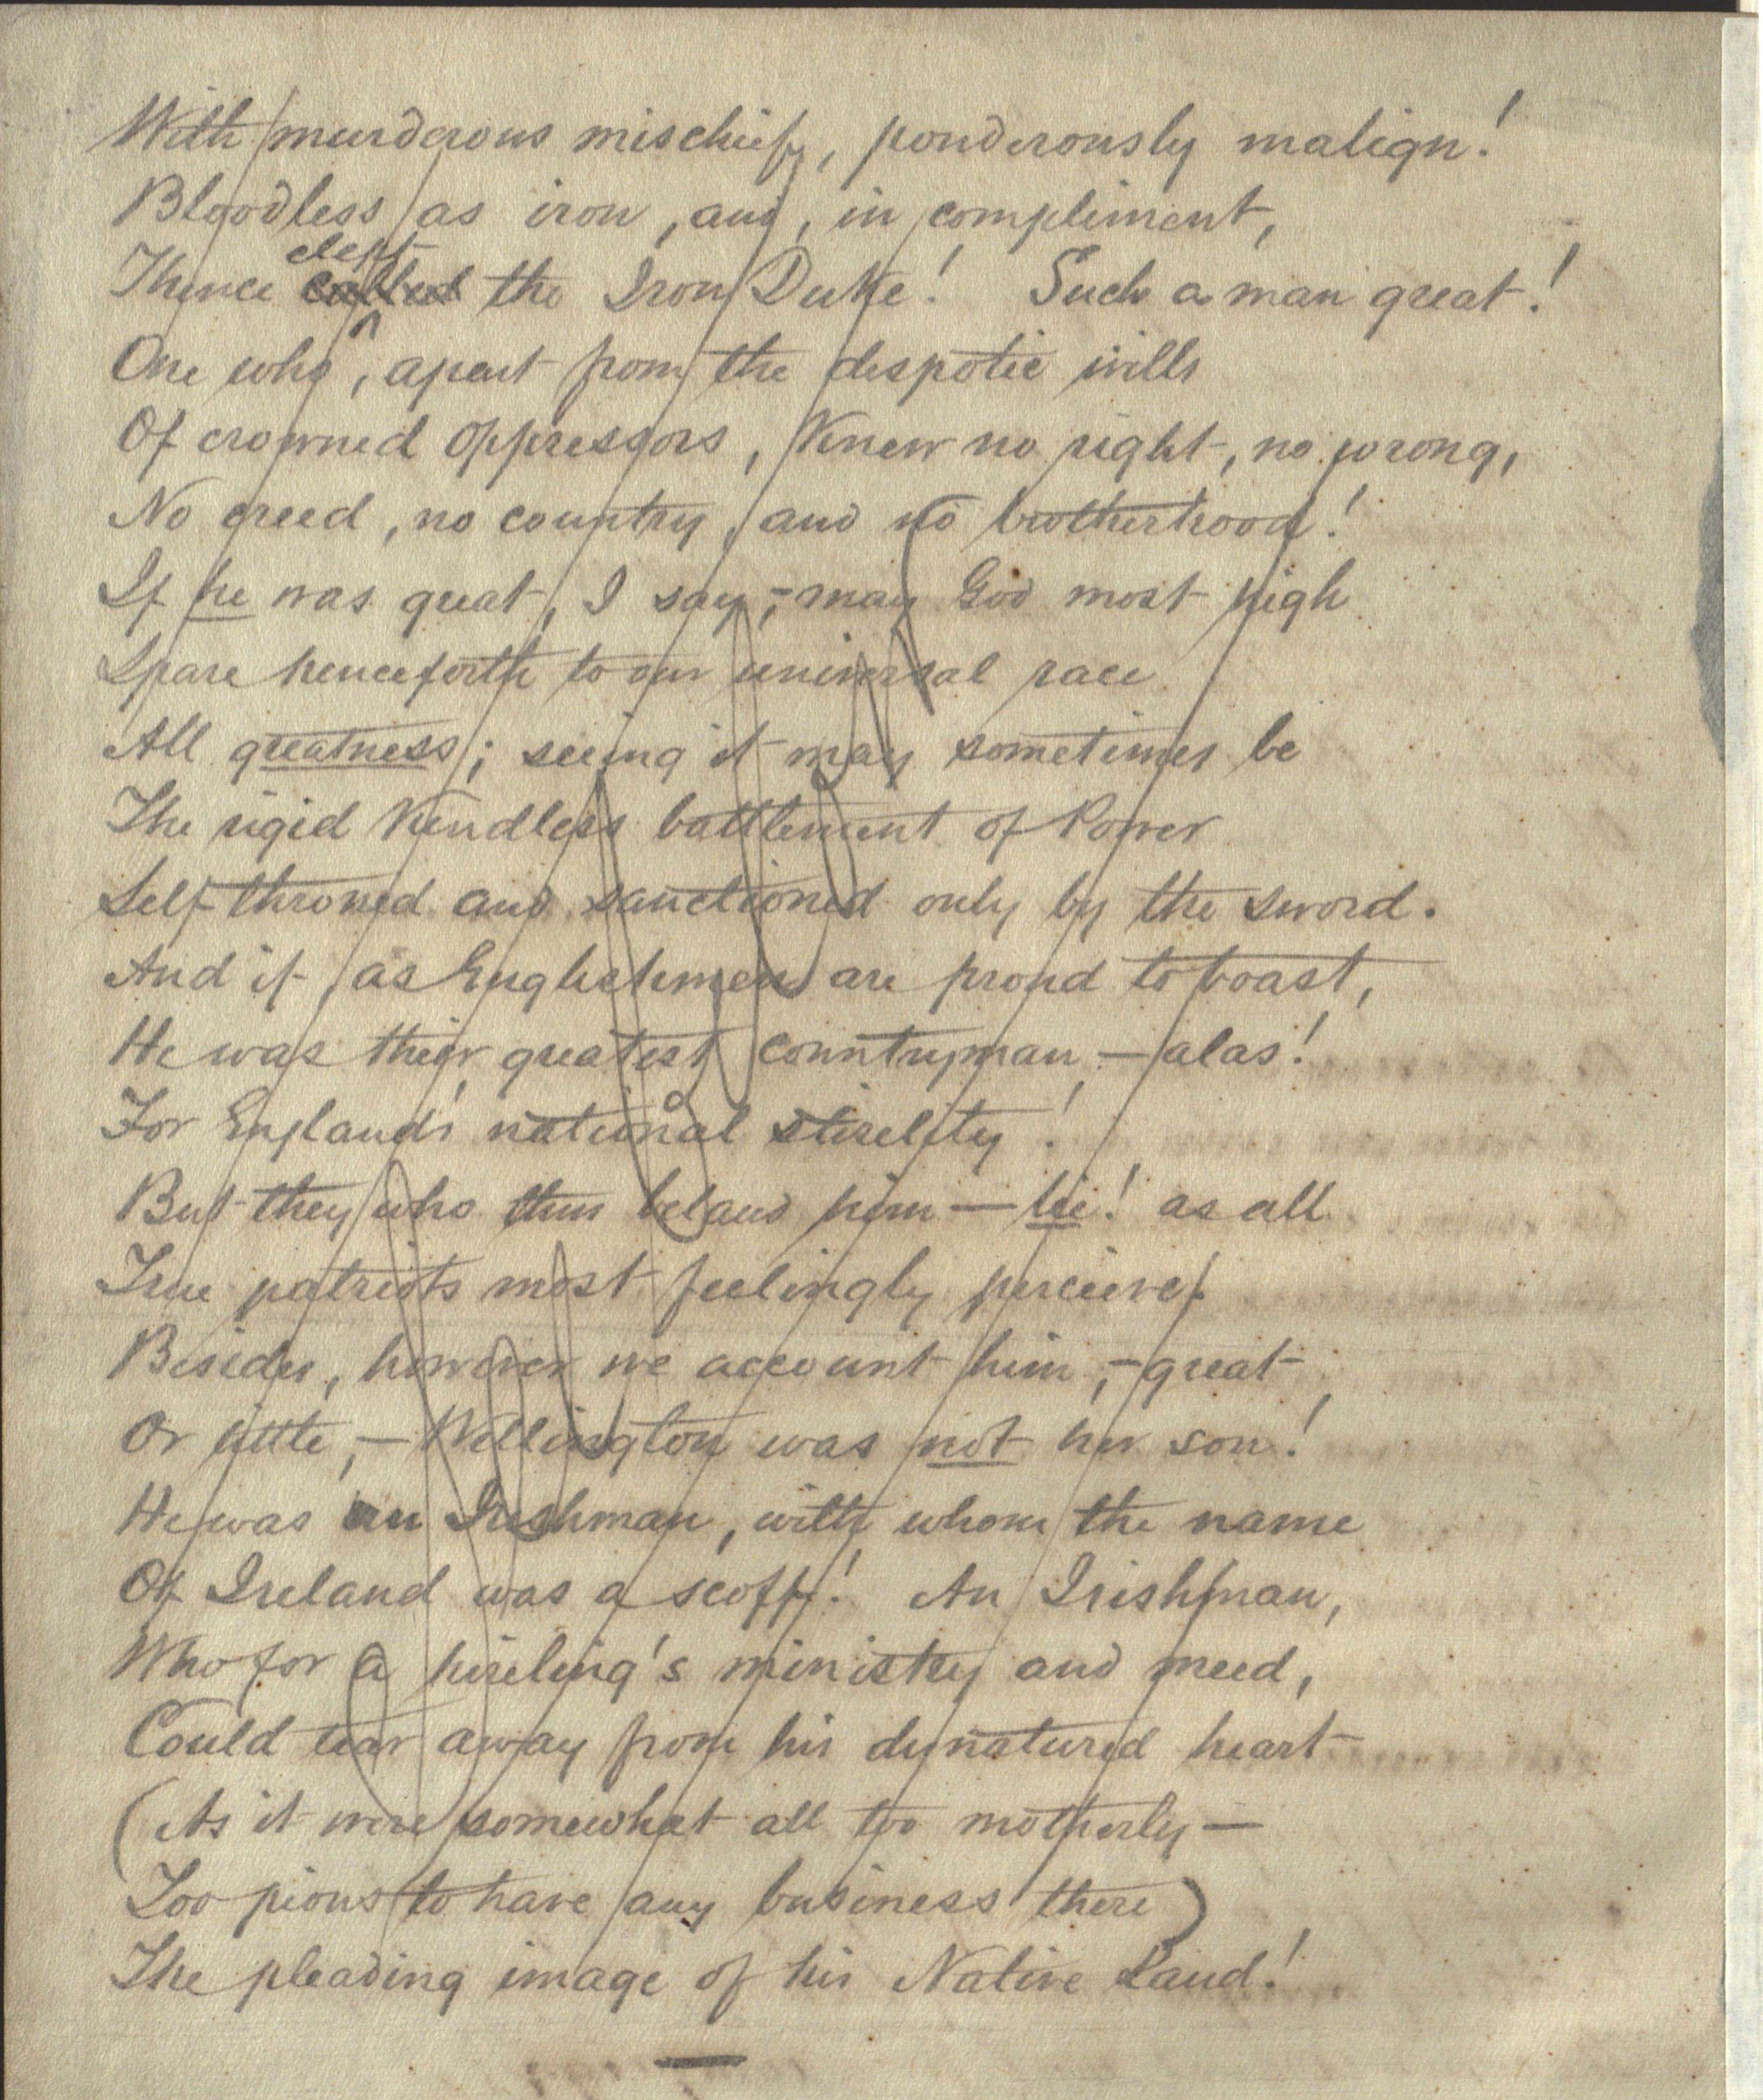 With murderous mischief, ponderously malign!
Bloodless as iron, and, in compliment,
Thence clept the Iron Duke! Such a man great!
One who, apart from the despotic wills
Of crowned oppressors, knew no right, no wrong,
No creed, no country, and no brotherhood!
If he was great, I say,—may God most high
Spare henceforth to our universal race
All greatness; seeing it may sometimes be
The rigid kindless battlement of Power
Self-throned and sanctioned only by the sword.
And if, as Englishmen are proud to boast,
He was their greatest countryman,—alas!
For England's national sterility!
But they who thus belaud him—lie! as all
True patriots most feelingly perceive!
Besides, however we account him,—great
Or little,—Wellington was not her son!
He was an Irishman, with whom the name
Of Ireland was a scoff! An Irishman,
Who for a hireling's ministry and meed,
Could tear away from his denatured heart
(As it were somewhat all too motherly—
Too pious to have any business there)
The pleading image of his Native Land!